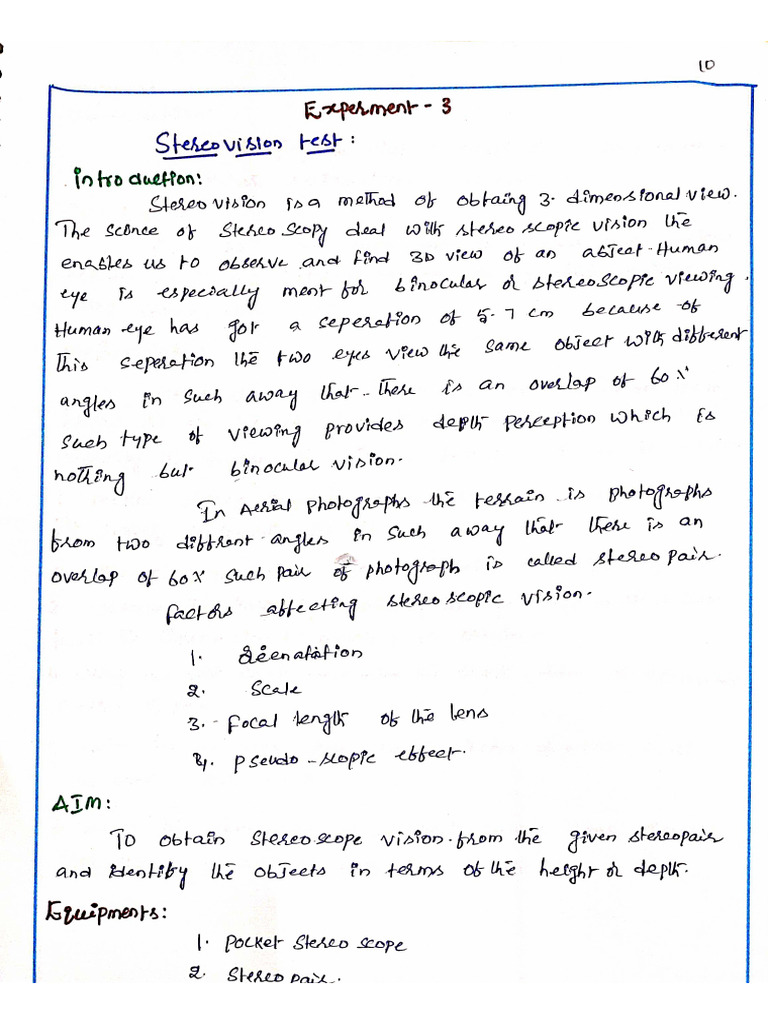 10
Experment - 3
Stereo vision test:
introduction:
Stereo vision is a method of obtaing 3-dimensional view.
The scince of stereo scopy deal with stereo scopic vision the
enables us to observe and find 3D view of an abject. Human
eye is especially ment for binocular or stereoscopic viewing.
Human eye has got a seperation of 5.7 cm because of
this seperation the two eyes view the same object with different
angles in such away that there is an overlap of 60%
such type of viewing provides depth perception which is
nothing but binocular vision.
In Aerial photographs the terrain is photographs
from two diffrent angles in such away that there is an
overlap of 60% such pair of photograph is called stereo pair.
factors affecting stereo scopic vision.
1.
2. Scale
3. Focal length of the lens
4. pseudo-scopic effect.
AIM:
To obtain stereo scope vision from the given stereopair
and identify the objects in terms of the height or depth.
Equipments:
1. pocket stereo scope
2. stereo pair.